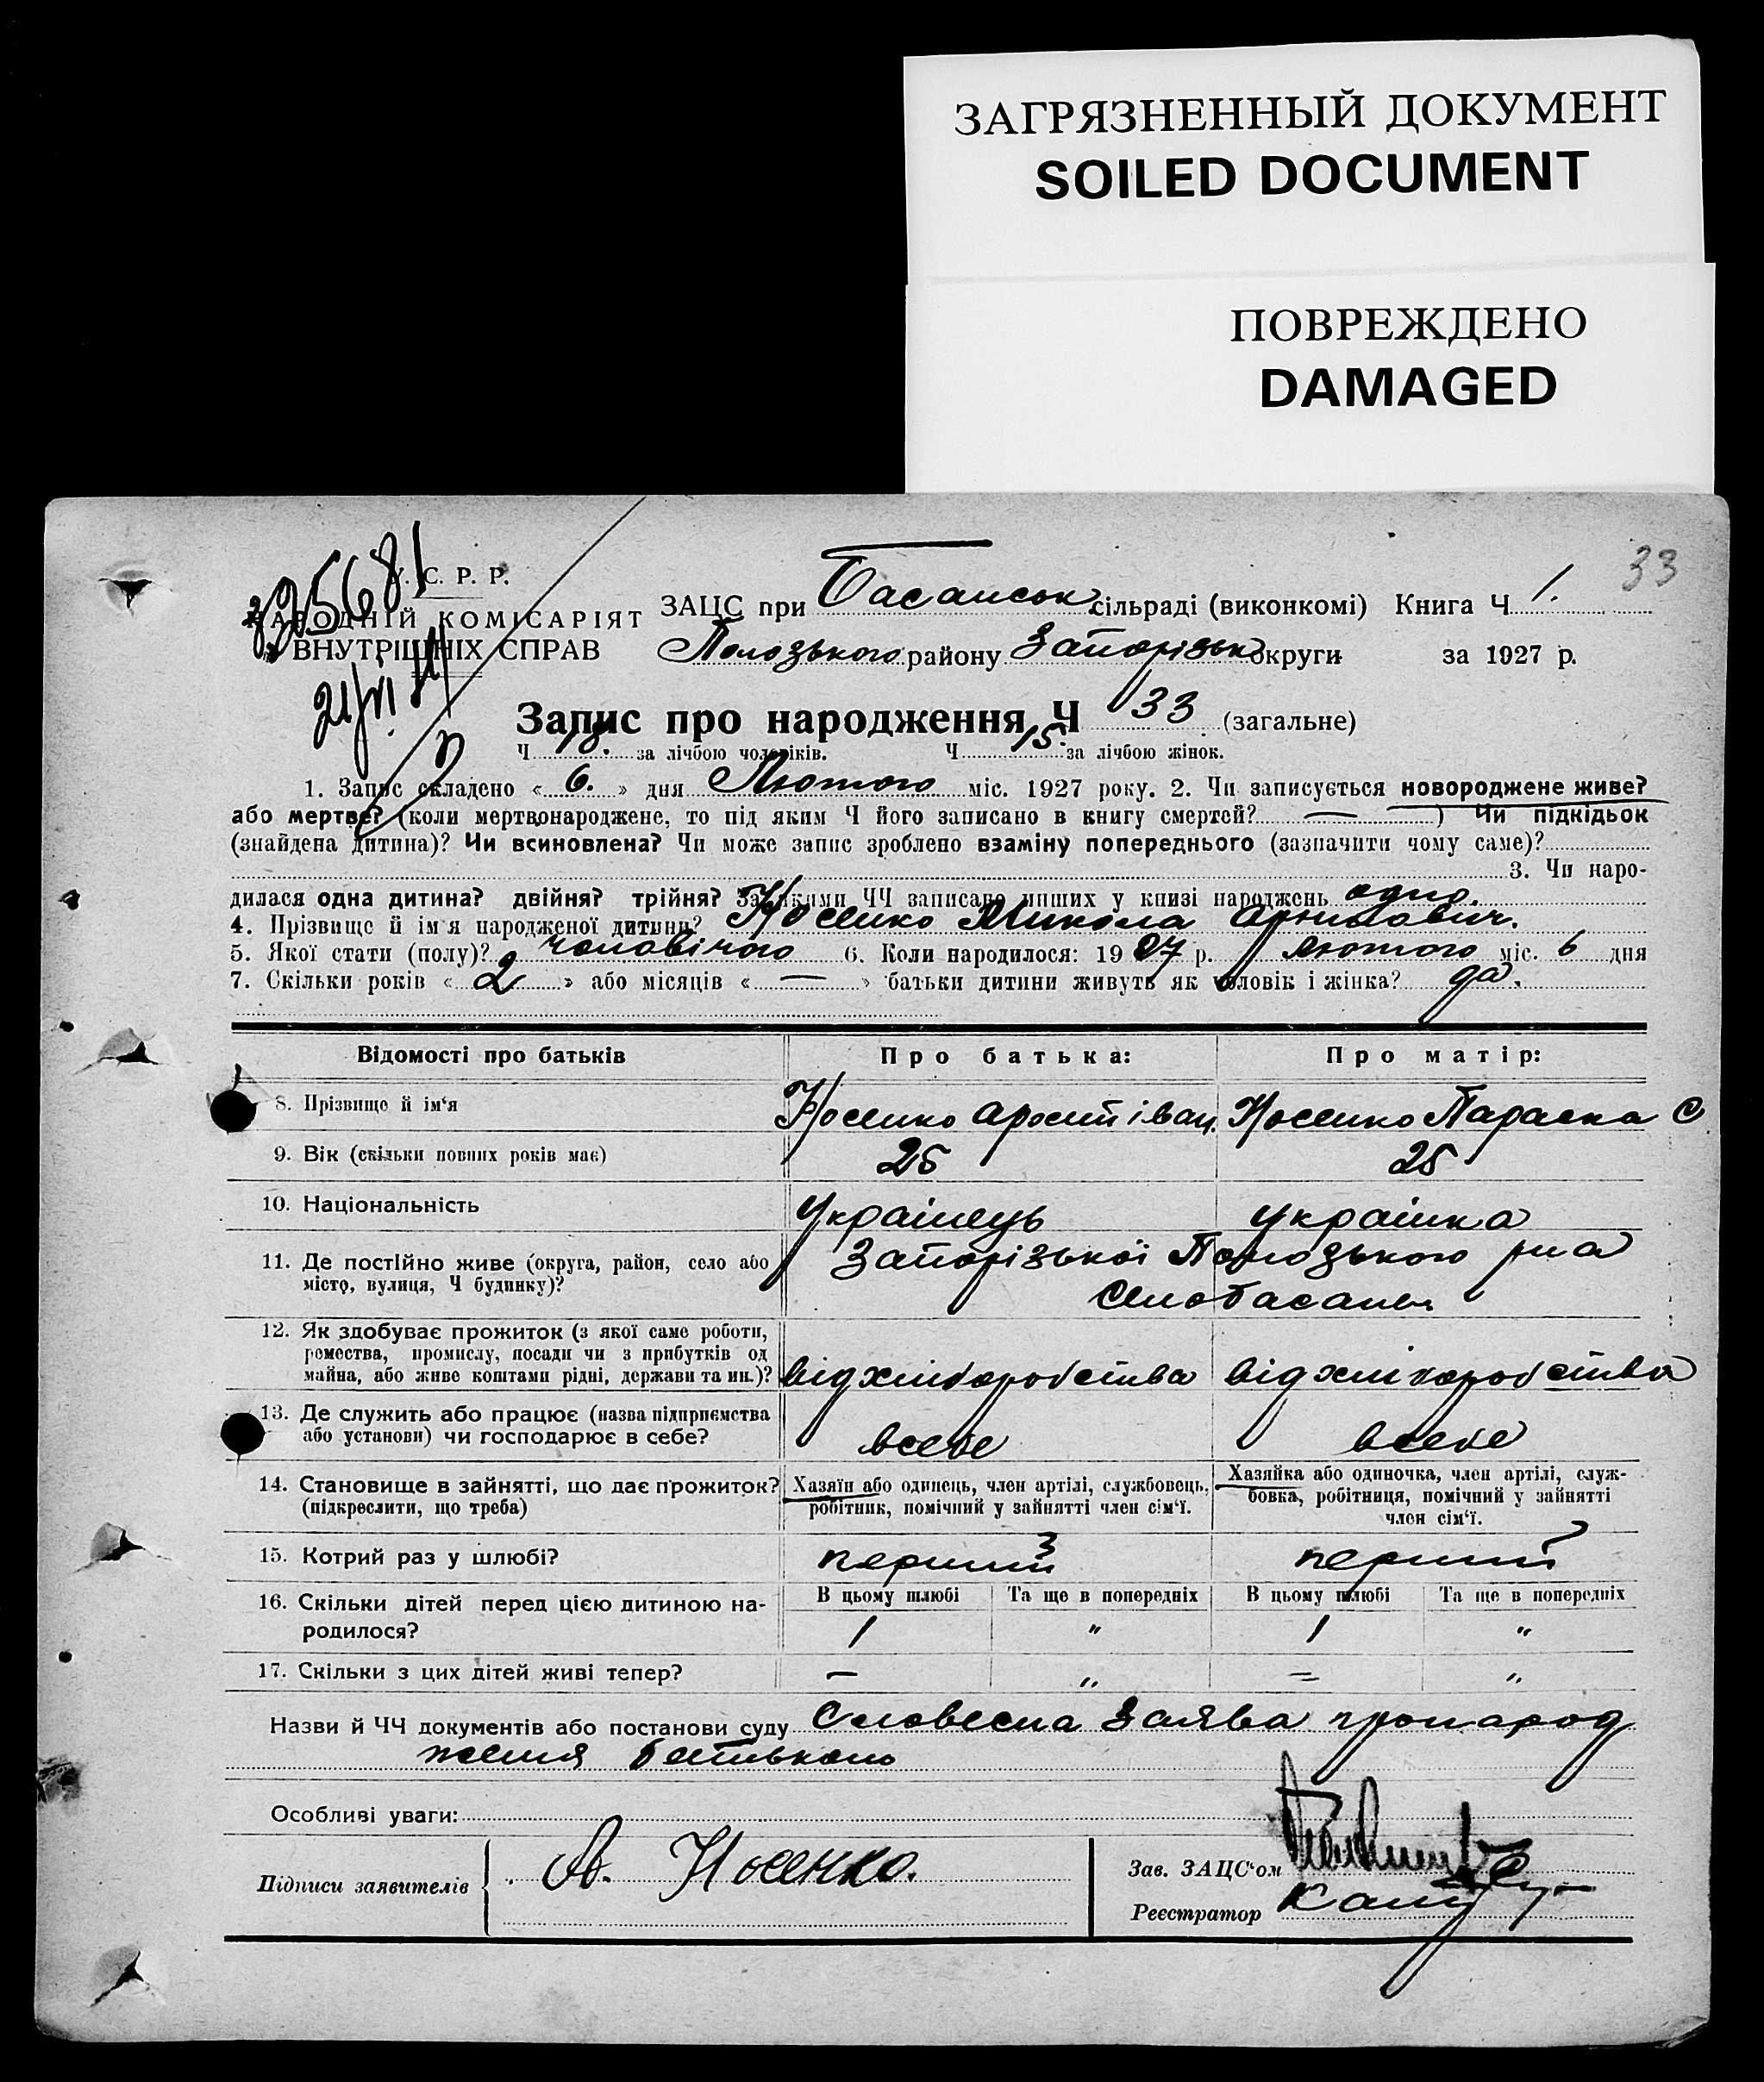 ЗАГРЯЗНЕННЫЙ ДОКУМЕНТ
SOILED DOCUMENT
ПОВРЕЖДЕНО
DAMAGED
33
У. С. Р. Р.
НАРОДНІЙ КОМІСАРІЯТ
ВНУТРІШНІХ СПРАВ
ЗАЦС при Басанськ сільраді (виконкомі) Книга Ч 1.
Пологзького району Запорізьк округи за 1927 р.
Запис про народження Ч 33 (загальне)
Ч 18. за лічбою чоловіків. Ч 15. за лічбою жінок.
1. Запис складено « 6. » дня Лютого міс. 1927 року. 2. Чи записується новороджене живе?
або мертве? (коли мертвонароджене, то під яким Ч його записано в книгу смертей? — ) Чи підкідьок
(знайдена дитина)? Чи всиновлена? Чи може запис зроблено взаміну попереднього (зазначити чому саме)?
3. Чи наро-
дилася одна дитина? двійня? трійня? За якими ЧЧ записано инших у книзі народжень одно.
4. Прізвище й ім'я народженої дитини? Носенко Микола
5. Якої стати (полу)? чоловічого 6. Коли народилося: 1927 р. лютого міс. 6 дня
7. Скільки років « 2 » або місяців « — » батьки дитини живуть як чоловік і жінка? да.
Відомості про батьків Про батька: Про матір:
8. Прізвище й ім'я Носенко Іван. Носенко Параска С
9. Вік (скільки повних років має) 25 25
10. Національність Українець Українка
11. Де постійно живе (округа, район, село або Запорізької Пологзького р на
місто, вулиця, Ч будинку)? Село Басань
12. Як здобуває прожиток (з якої саме роботи,
ремества, промислу, посади чи з прибутків од
майна, або живе коштами рідні, держави та ин.)? від хліборобства від хліборобства
13. Де служить або працює (назва підприємства
або установи) чи господарює в себе? в себе в себе
14. Становище в зайнятті, що дає прожиток? Хазяїн або одинець, член артілі, службовець, Хазяйка або одиночка, член артілі, служ-
(підкреслити, що треба) робітник, помічний у зайнятті член сім'ї. бовка, робітниця, помічний у зайнятті
член сім'ї.
15. Котрий раз у шлюбі? перший перший
16. Скільки дітей перед цією дитиною на- В цьому шлюбі Та ще в попередніх В цьому шлюбі Та ще в попередніх
родилося? 1 " 1 "
17. Скільки з цих дітей живі тепер? — " = "
Назви й ЧЧ документів або постанови суду Словесна Заява про народ
ження батьками
Особливі уваги:
Підписи заявителів А. Носенко.
Зав. ЗАЦС'ом
Реєстратор